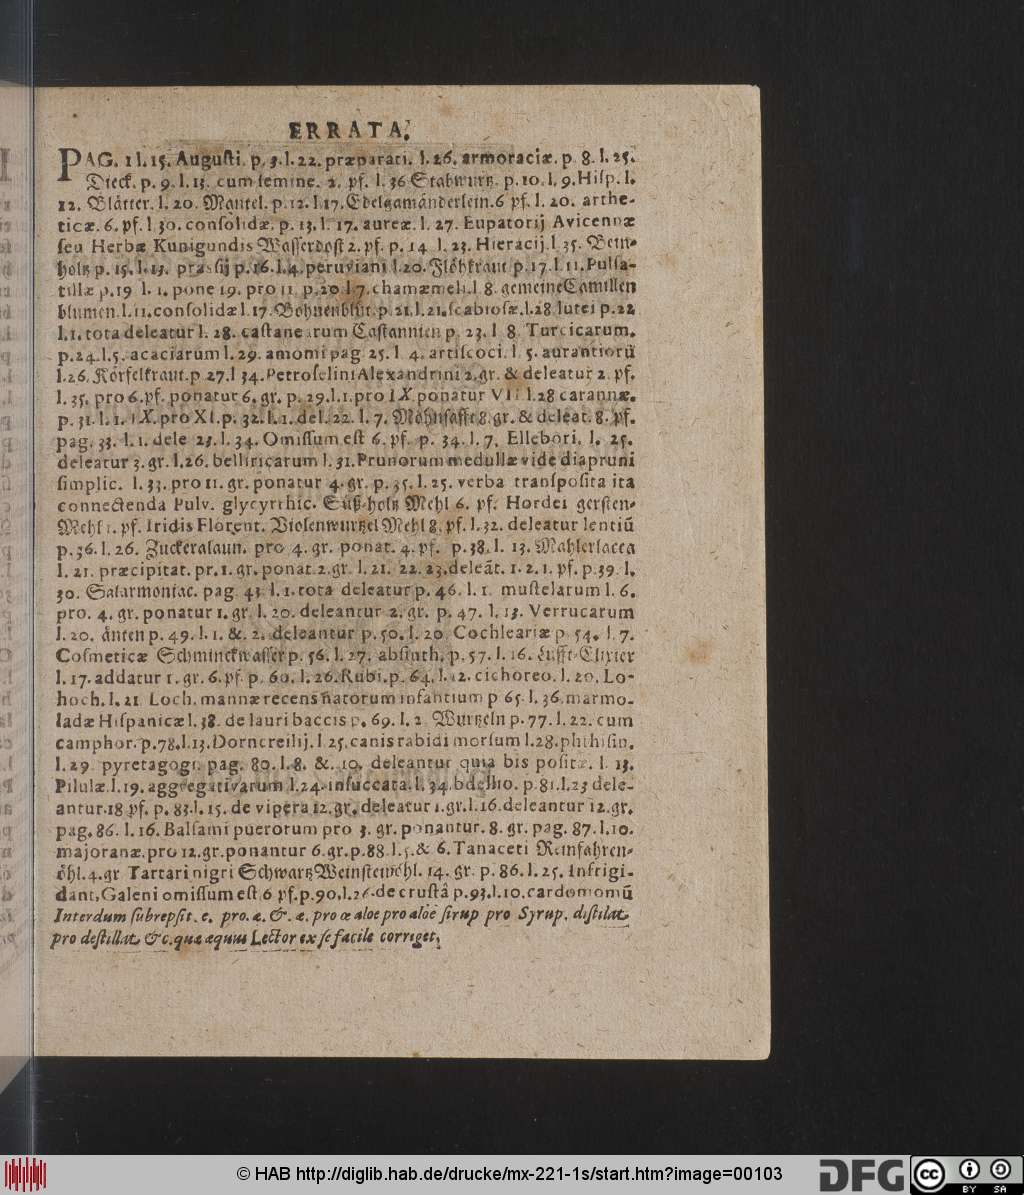 ERRATA.
PAG. 1 l. 15. Augusti. p. 3. l. 22. præparati. l. 26. armoraciæ. p. 8. l. 25.
Dieck. p. 9. l. 13. cum semine. 2. pf. l. 36 Stabwurtz. p. 10. l. 9. Hisp. l.
12. Blåtter. l. 20. Mantel. p. 12. l. 17. Edelgamånderlein. 6 pf. l. 20. arthe-
ticæ. 6. pf. l. 30. consolidæ. p. 13. l. 17. aureæ. l. 27. Eupatorij Avicennæ
seu Herbæ Kunigundis Wasserdost 2. pf. p. 14. l. 23. Hieracij. l. 35. Bein-
holtz p. 15. l. 13. prassij p. 16. l. 4. peruviani l. 20. Flöhkraut p. 17. l. 11. Pulsa-
tillæ p. 19. l. 1. pone 19. pro 11. p. 20. l. 7. chamæmeli. l. 8. gemeine Camillen
blumen. l. 11. consolidæ l. 17. Bohnenblüt. p. 21. l. 21. scabiosæ. l. 28. lutei p. 22
l. 1. tota deleatur l. 28. castanearum Castannien p. 23. l. 8. Turcicarum.
p. 24. l. 5. acaciarum l. 29. amomi pag. 25. l. 4. artiscoci. l. 5. aurantiorũ
l. 26. Körfelkraut. p. 27. l. 34. Petroselini Alexandrini 2. gr. & deleatur 2. pf.
l. 35. pro 6. pf. ponatur 6. gr. p. 29. l. 1. pro IX. ponatur VII l. 28 carannæ.
p. 31. l. 1. IX. pro XI. p. 32. l. 1. del. 22. l. 7. Möhnsafft 8. gr. & deleat. 8. pf.
pag. 33. l. 1. dele 23. l. 34. Omissum est 6. pf. p. 34. l. 7. Ellebori. l. 25.
deleatur 3. gr. l. 26. belliricarum l. 31. Prunorum medullæ vide diapruni
simplic. l. 33. pro 11. gr. ponatur 4. gr. p. 35. l. 25. verba transposita ita
connectenda Pulv. glycyrrhic. Süß-holtz Mehl 6. pf. Hordei gersten-
Mehl 1. pf. Iridis Florent. Violenwurtzel Mehl 8. pf. l. 32. deleatur lentiũ
p. 36. l. 26. Zuckeralaun. pro 4. gr. ponat. 4. pf. p. 38. l. 13. Mahlerlacca
l. 21. præcipitat. pr. 1. gr. ponat. 2. gr. l. 21. 22. 23. deleãt. 1. 2. 1. pf. p. 39. l.
30. Salarmoniac. pag. 43. l. 1. tota deleatur p. 46. l. 1. mustelarum l. 6.
pro. 4. gr. ponatur 1. gr. l. 20. deleantur 2. gr. p. 47. l. 13. Verrucarum
l. 20. ånten p. 49. l. 1. &. 2. deleantur p. 50. l. 20. Cochleariæ p. 54. l. 7.
Cosmeticæ Schminckwasser p. 56. l. 27. absinth. p. 57. l. 16. Lufft-Elixier
l. 17. addatur 1. gr. 6. pf. p. 60. l. 26. Rubi. p. 64. l. 12. cichoreo. l. 20. Lo-
hoch. l. 21. Loch. mannæ recens natorum infantium p 65. l. 36. marmo-
ladæ Hispanicæ l. 38. de lauri baccis p. 69. l. 2. Wurtzeln p. 77. l. 22. cum
camphor. p. 78. l. 13. Dorncreilij. l. 25. canis rabidi morsum l. 28. phthisin.
l. 29. pyretagogi: pag. 80. l. 8. &. 10. deleantur quia bis posita. l. 13.
Pilulæ. l. 19. aggregativarum l. 24. insuccata. l. 34. bdellio. p. 81. l. 23 dele-
antur. 18 pf. p. 83. l. 15. de vipera 12. gr. deleatur 1. gr. l. 16. deleantur 12. gr.
pag. 86. l. 16. Balsami puerorum pro 3. gr. ponantur. 8. gr. pag. 87. l. 10.
majoranæ. pro 12. gr. ponantur 6. gr. p. 88. l. 5. & 6. Tanaceti Reinfahren-
öhl. 4. gr Tartari nigri Schwartz Weinsteinöhl. 14. gr. p. 86. l. 25. Infrigi-
dant. Galeni omissum est 6 pf. p. 90. l. 26. de crustâ p. 93. l. 10. cardomomũ
Interdum subrepsit. e. pro. æ. &. æ. pro œ aloe pro aloë sirup pro Syrup. distilat.
pro destillat. &c. quæ æquus Lector ex se facile corriget.
© HAB http://diglib.hab.de/drucke/mx-221-1s/start.htm?image=00103
DFG
cc
BY SA